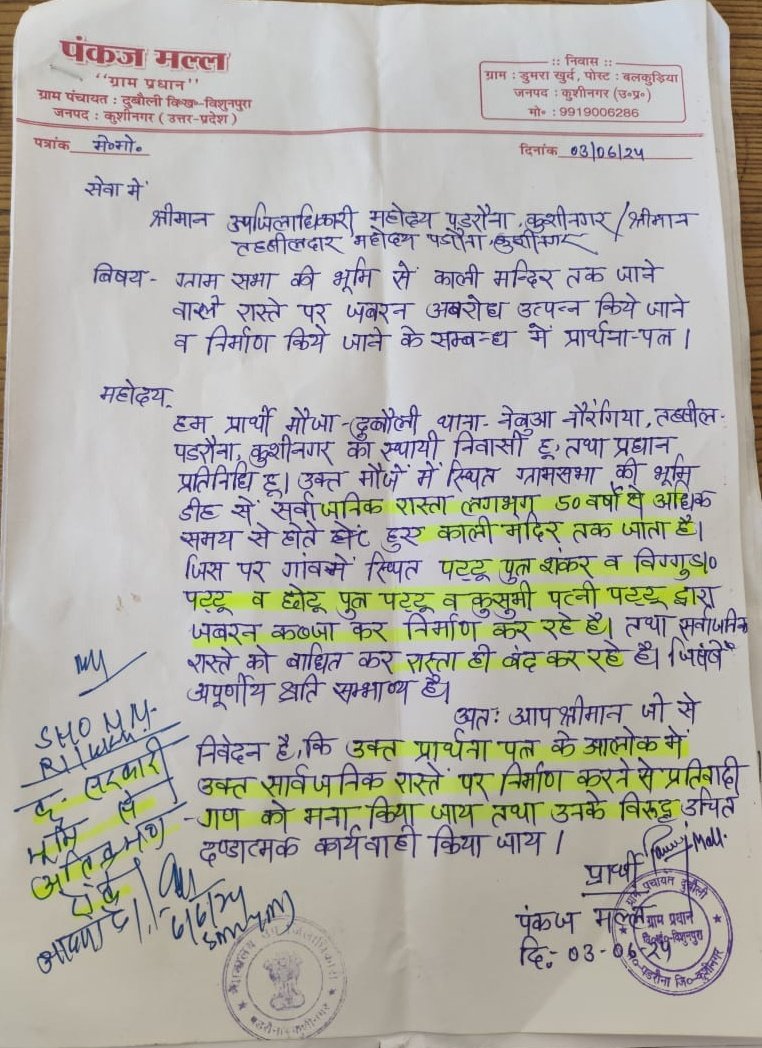 पंकज मल्ल
"ग्राम प्रधान"
ग्राम पंचायत : दुबौली वि०ख०-विशुनपुरा
जनपद : कुशीनगर ( उत्तर-प्रदेश )
:: निवास ::
ग्राम : डुमरा खुर्द, पोस्ट : बलकुड़िया
जनपद : कुशीनगर (उ०प्र०)
मो० : 9919006286
पत्रांक मे०मो०
दिनांक 03/06/24
सेवा में
श्रीमान उपजिलाधिकारी महोदय पडरौना, कुशीनगर / श्रीमान
तहसीलदार महोदय पडरौना, कुशीनगर
बिषय - ग्राम सभा की भूमि से काली मन्दिर तक जाने
वाले रास्ते पर जबरन अबरोध उत्पन्न किये जाने
व निर्माण किये जाने के सम्बन्ध में प्रार्थना-पत्र ।
महोदय,
हम प्रार्थी मौजा-दुबौली थाना- नेबुआ नौरंगिया, तहसील-
पडरौना, कुशीनगर का स्थायी निवासी हू, तथा प्रधान
प्रतिनिधि हू। उक्त मौजे में स्थित ग्रामसभा की भूमि
डीह से सर्वाजनिक रास्ता लगभग 50 वर्षो से अधिक
समय से होते हुए काली मंदिर तक जाता है।
जिस पर गांव में स्थित पट्टू पुत्र शंकर व विग्गु
पट्टू व छोटू पुत्र पट्टू व कुसुभी पत्नी पट्टू द्वारा
जबरन कब्जा कर निर्माण कर रहे है। तथा सर्वाजनिक
रास्ते को बाधित कर रास्ता ही बंद कर रहे है। जिससे
अपूर्णीय क्षति सम्भाव्य है।
अतः आप श्रीमान जी से
निवेदन है, कि उक्त प्रार्थना पत्र के आलोक में
उक्त सार्वजनिक रास्ते पर निर्माण करने से प्रतिवादी
-गण को मना किया जाय तथा उनके विरूद्ध उचित
दण्डात्मक कार्यवाही किया जाय ।
SHO N.N.
RI
कृ० सरकारी
भूमि से
अतिक्रमण
रोकें
6/6/24
प्रार्थी
पंकज मल्ल
दि:- 03-06-24
ग्राम पंचायत दुबौली
ग्राम प्रधान
वि०ख०-विशुनपुरा
त०-पडरौना जि०-कुशीनगर
कार्यालय उप जिलाधिकारी
पडरौना-कुशीनगर